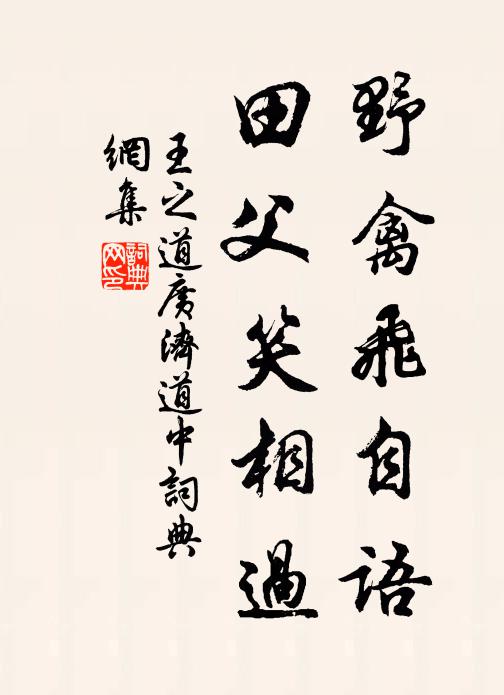 野禽飛自語
田父笑相過
王之道廣濟道中詞典
網集
詞典
网印